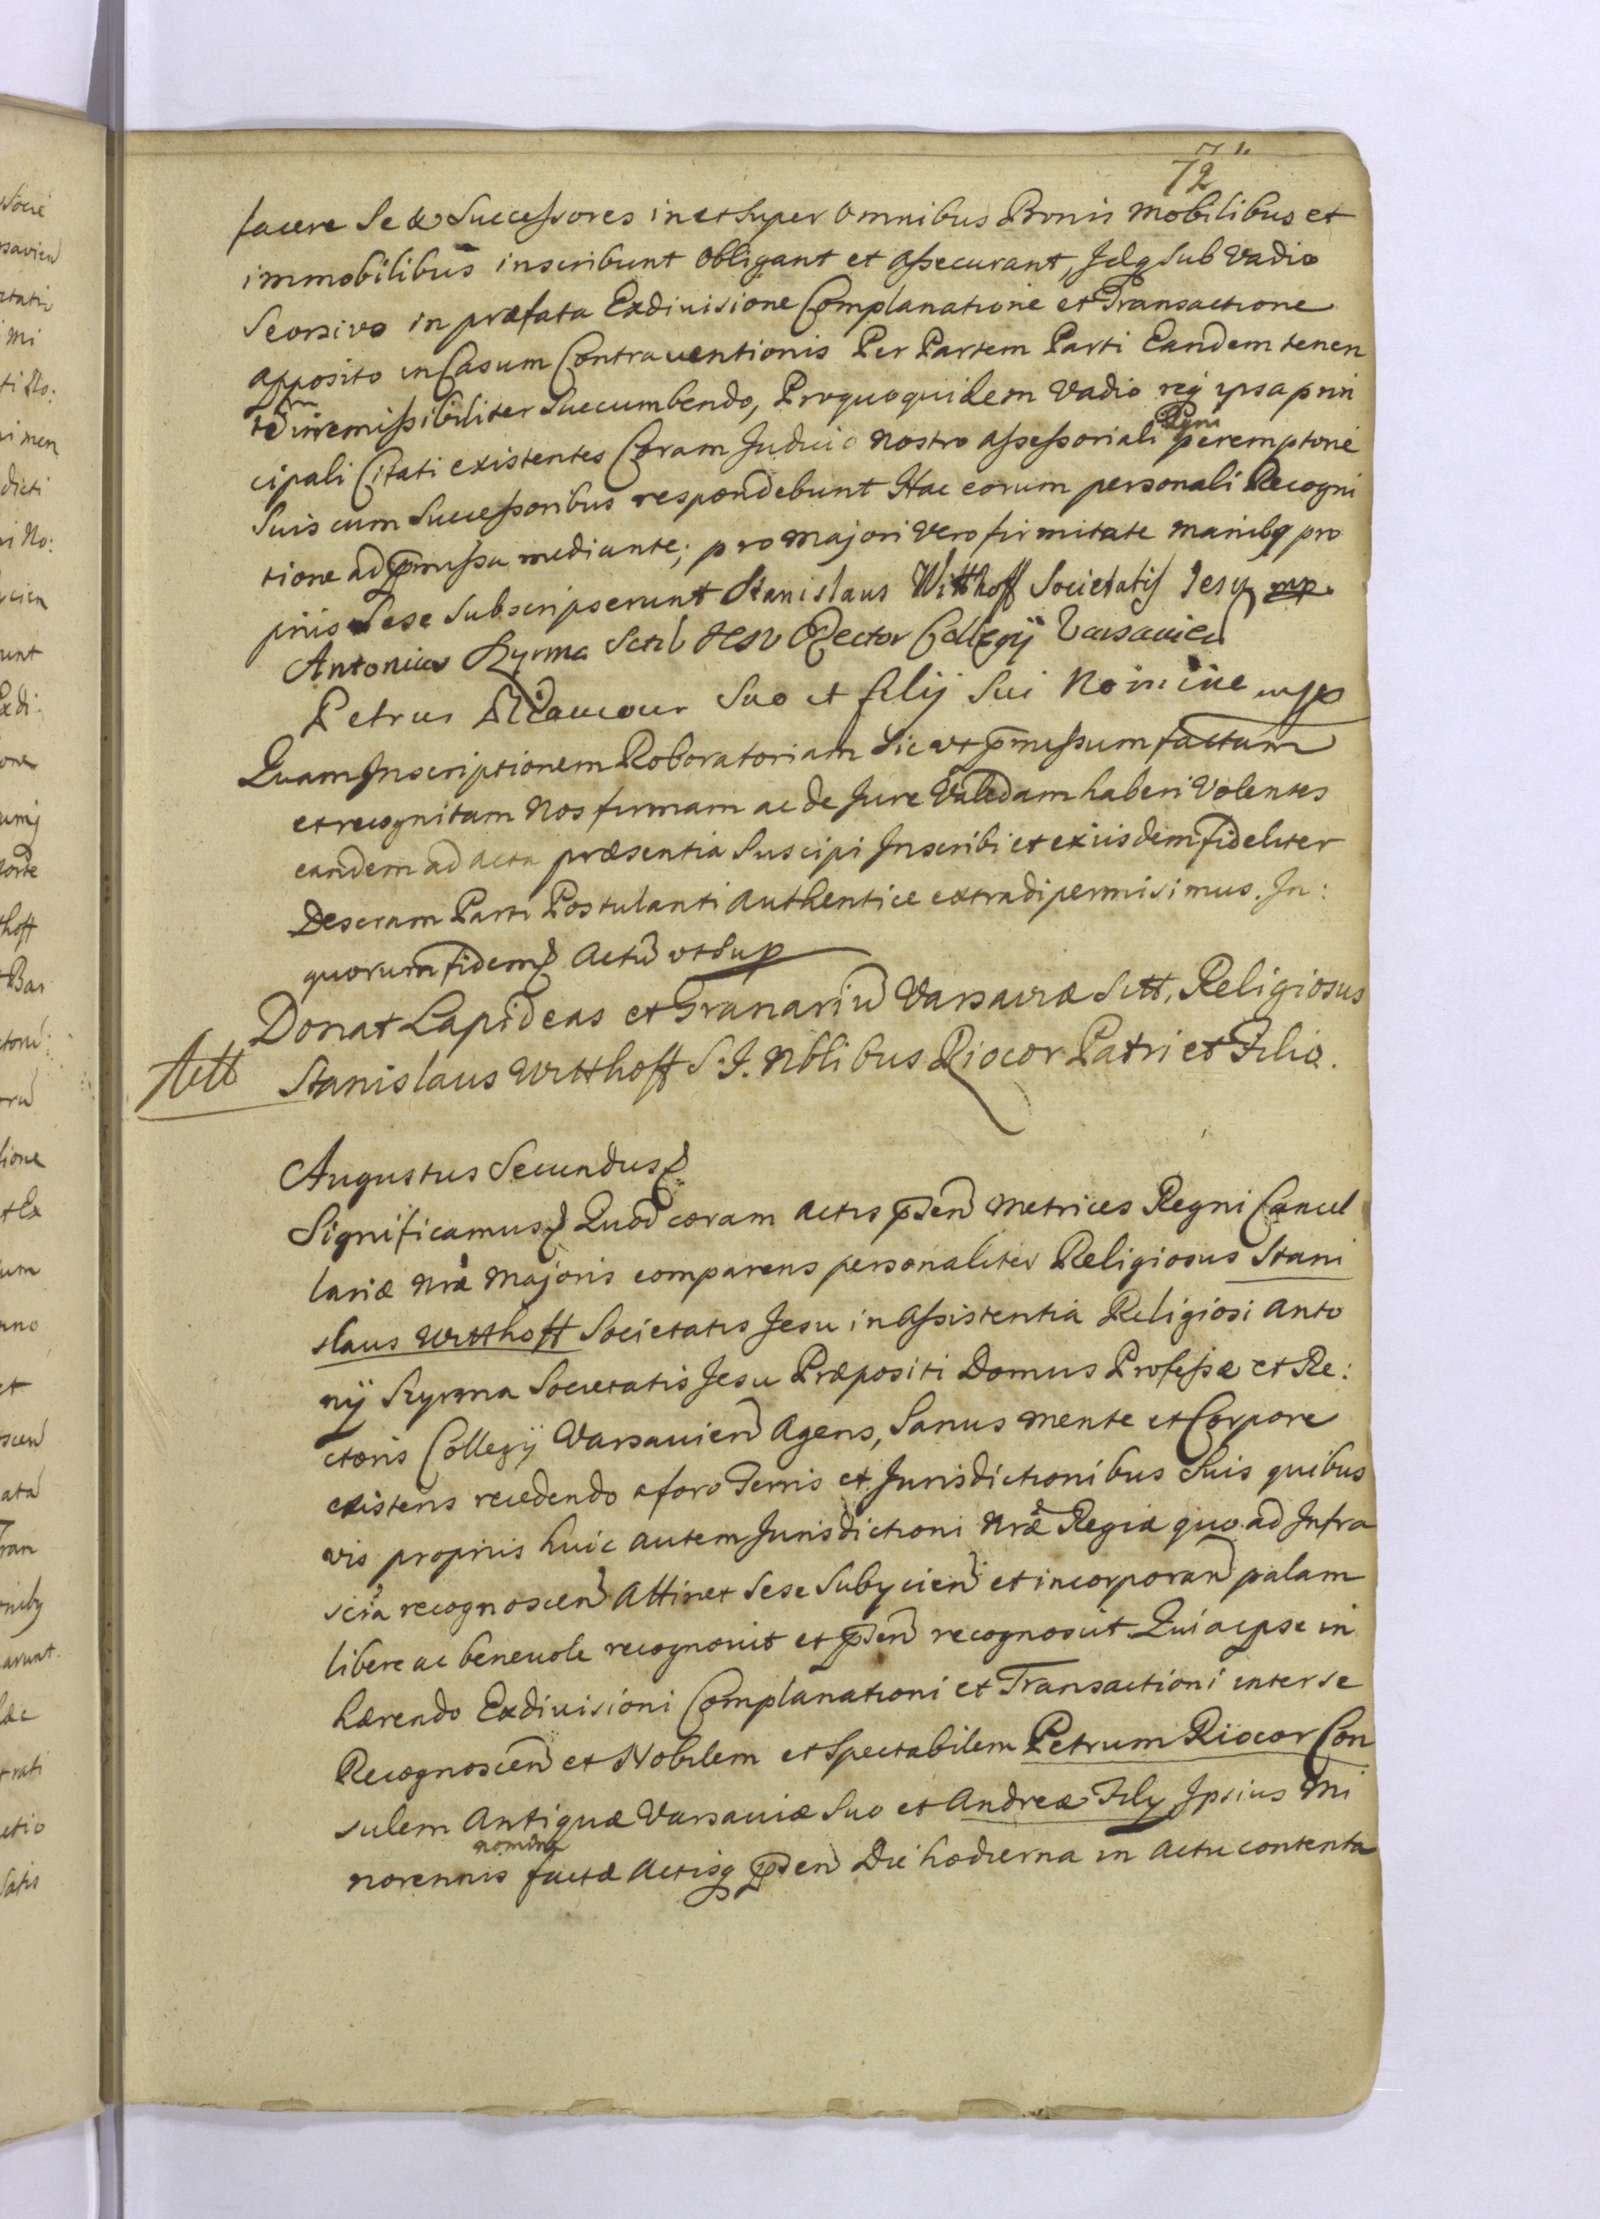 72
facere Se & Successores in et super omnibus Bonis mobilibus et
immobilibus inscribunt obligant et assecurant, Idq sub vadio
Seorsivo in præfata Exdiuisione Complanatione et Transactione
apposito in Casum Contrauentionis Per Partem Parti Eandem tenen
irremissibiliter succumbendo, Pro quo quidem vadio ipsa prin
Regni
cipali Citati existentes Coram Judicio nostro assessoriali peremptorie
suis cum successoribus respondebunt Hac eorum personali Recogni
tione ad pmissa mediante; pro majori vero firmitate manibq pro
priis sese subscripserunt Stanislaus Witthoff Societatis Jesu mp.
Antonius Szyrma Rector Collegij Varsauien
Petrus Riaucour suo et filij sui Nomine mp
Quam Inscriptionem Roboratoriam sic ut pmissum factam
et recognitam Nos firmam ac de Jure Validam haberi Volentes
eandem ad acta præsentia suscipi Inscribi et ex iisdem fideliter
Descram Parti Postulanti authentice extradi permisimus. In:
quorum fidem Actū ut sup
Donat Lapideas et Granariū Varsaviæ Sitt, Religiosus
Stanislaus Witthoff S. J. Nblibus Riocor Patri et Filio.
Augustus Secundus
Significamus Quod coram actis psen Metrices Regni Cancel
lariæ nræ Majoris comparens personaliter Religiosus Stani
slaus Witthoff Societatis Jesu in assistentia Religiosi Anto
nij Szyrma Societatis Jesu Præpositi Domus Professæ et Re:
ctoris Collegij Varsauien Agens, Sanus mente et Corpore
existens recedendo a foro Terris et Jurisdictionibus suis quibus
vis propriis huic autem Jurisdictioni nræ Regiæ quo ad Infra
scta recognoscen Attinet sese subycien et incorporan palam
libere ac beneuole recognouit et psen recognoscit Quia ipse in
hærendo Exdiuisioni Complanationi et Transactioni inter se
Recognoscen et Nobilem et Spectabilem Petrum Riocor Con
sulem Antiquæ Varsauiæ suo et Andreæ Filij Ipsius Mi
nomine
norennis factæ Actisq psen Die hodierna in Actu contenta